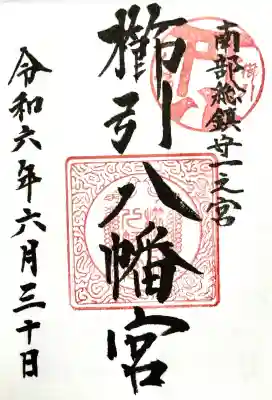 南部総鎮守一之宮
櫛引八幡宮
令和六年六月三十日